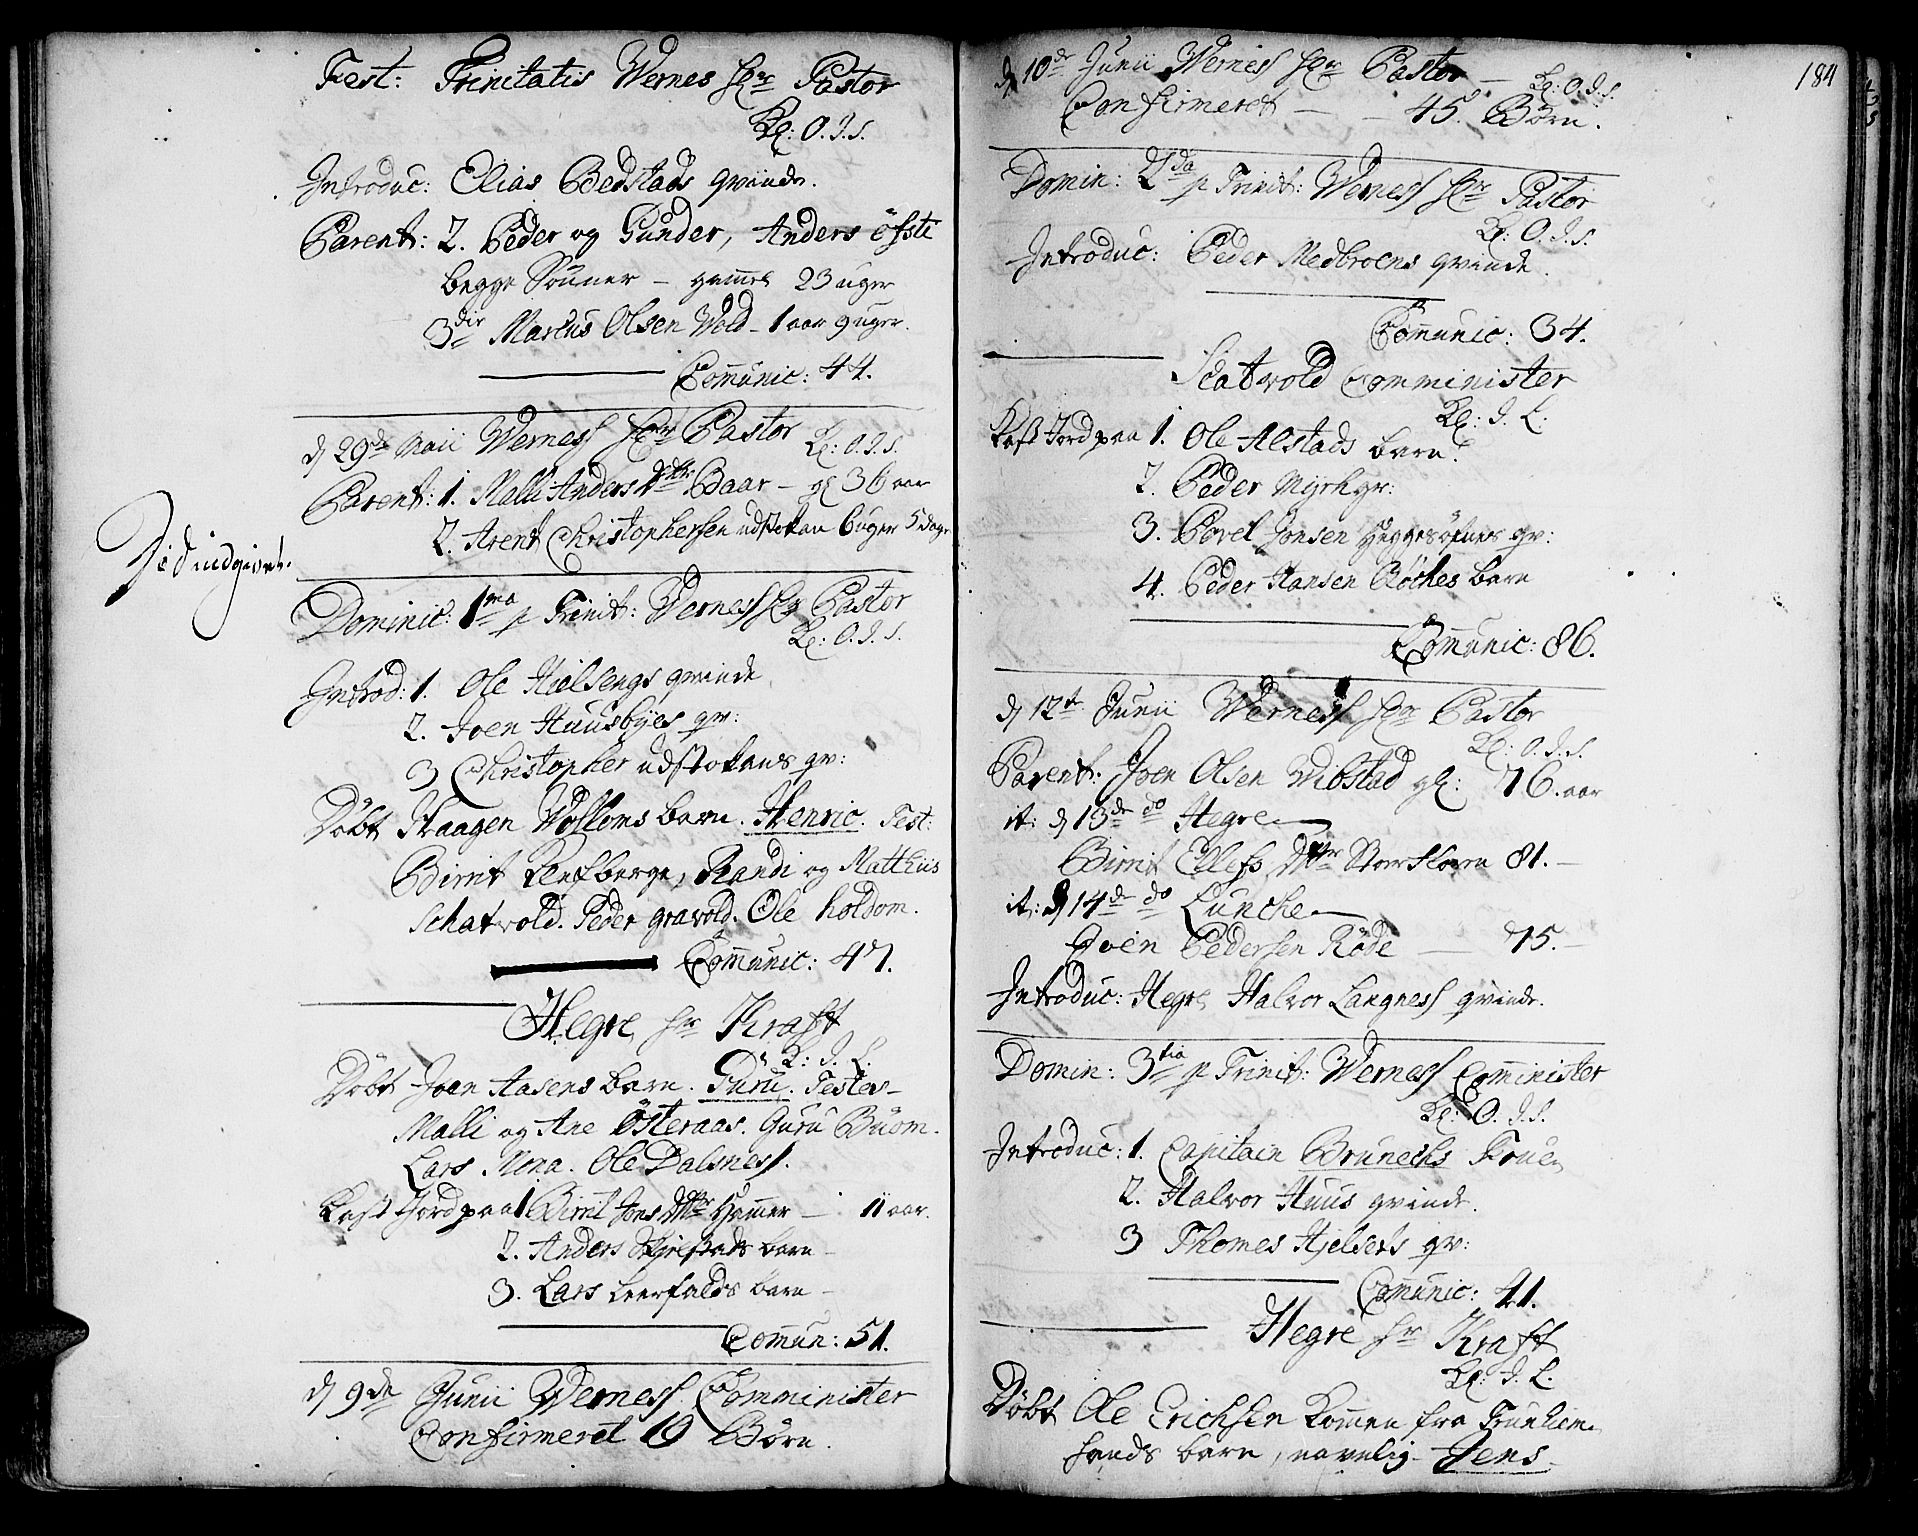 Fest: Trinitatis Wernes Hr Pastor
Kl: O. I. S.
Introduc: Elias Bedstads qvinde.
Parent: 2. Peder og Gunder, Anders öfsti
begge Sönner – gammel 23 uger
3die Marcus Olsen Wold – 1 aar 9 uger.
Communic: 44.
d 29de Maii Werness Hr Pastor
Kl: O. I. S.
Parent: 1. Malli Anders dttr Baar – gl 36 aar
2. Arent Christophersen udstokan 6 uger 5 dage
indgivet.
Dominic: 1ma p Trinit: Werness Hr Pastor
Kl: O. I. S.
Introd: 1. Ole Hielsengs qvinde
2. Joen Huusbyes qv:
3 Christopher udstokans qv:
Döbt Haagen Wollems barn. Henric. Test:
Birrit Renfberge, Randi og Matthiis
Schatwold. Peder gravold. Ole holdom.
Communic: 47.
Hegre Hr Kraft
K: I. L.
Döbt Joen Aasens barn. Guru. Testes –
Malli og Ane Österaas. Guru Buom.
Lars Mona. Ole Dalsness.
Kast Jord paa 1 Birrit Jons dttr Hammer – 11 aar.
2. Anders barn –
3. Lars Leerfalds barn –
Commun: 51.
d 9de Junii Werness Comminister
Confirmeret 19 Börn.
184
d 10de Junii Werness Hr Pastor –
Kl: O. I. S.
Confirmeret – – 45. Börn.
Domin: 2da p Trinit: Werness Hr Pastor
Kl: O. I. S.
Introduc: Peder Medbroens qvinde.
Communic: 34.
Schatwold Comminister
Kl: I. L.
Kast Jord paa 1. Ole Alstads barn.
2. Peder Myrh qv:
3. Povel Jonsen Heggesöfnes qv:
4. Peder Hansen Röches barn
Communic: 86.
d 12te Junii Werness Hr Pastor
Kl: O. I. S.
Parent: Joen Olsen Wibstad gl: 76. aar
it: d 13de do Hegre
Birrit Ellefs dttr Storfloren 81. –
it: d 14de do Luncke
Joen Pedersen Röde – 75. –
Introduc: Hegre Halvor Langness qvinde.
Domin: 3tia p Trinit: Werness Comminister
Kl: O. I. S.
Introduc: 1. Capitain Brunechs Frue
2. Halvor Huus qvinde.
3 Thomes Hjelsets qv:
Communic: 41.
Hegre Hr Kraft
Kl: I. L.
Döbt Ole Erichsen kommen fra Trunhiem
barn, navnlig – Jens –